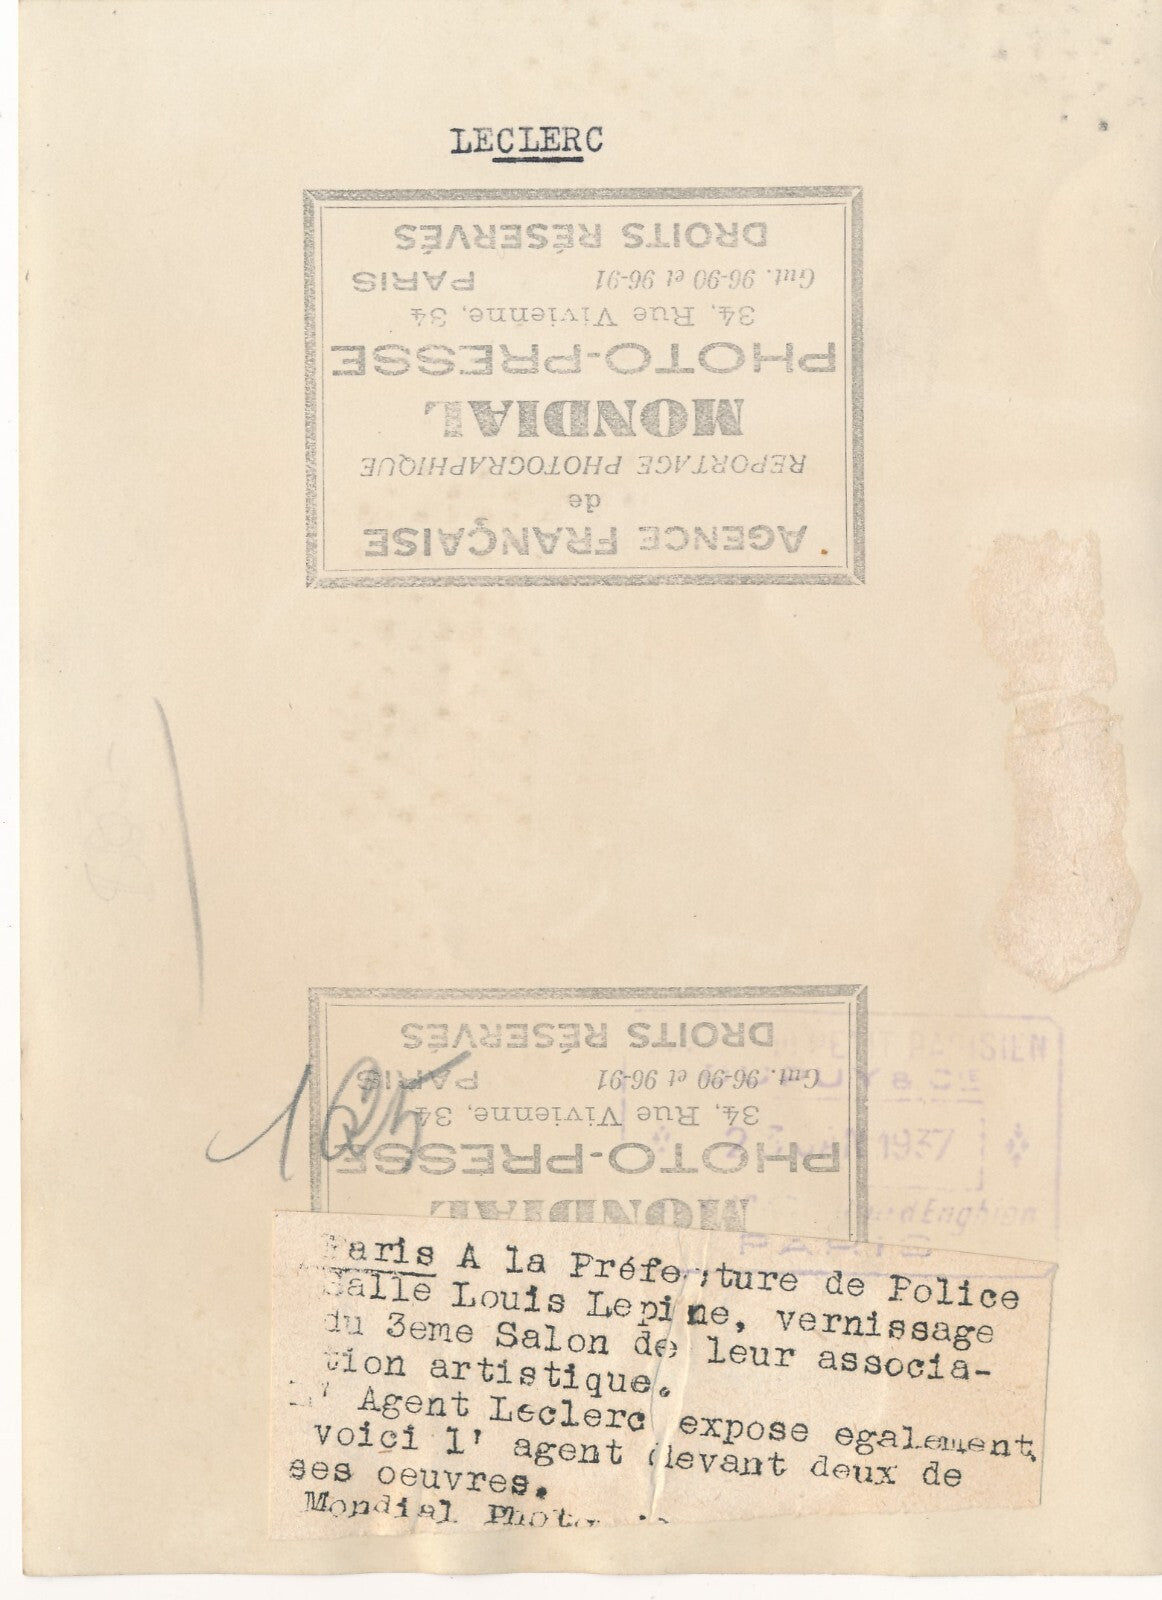 LECLERC
DROITS RÉSERVÉS
Gut. 96-90 et 96-91 PARIS
34, Rue Vivienne, 34
PHOTO-PRESSE
MONDIAL
REPORTAGE PHOTOGRAPHIQUE
de
AGENCE FRANÇAISE
DROITS RÉSERVÉS
Gut. 96-90 et 96-91 PARIS
34, Rue Vivienne, 34
PHOTO-PRESSE
MONDIAL
165
PARISIEN
& Cie
1937
d'Enghien
PARIS
Paris A la Préfecture de Police
Salle Louis Lepine, vernissage
du 3eme Salon de leur associa-
tion artistique.
L' Agent Leclerc expose egalement
voici l' agent devant deux de
ses oeuvres.
Mondial Photo